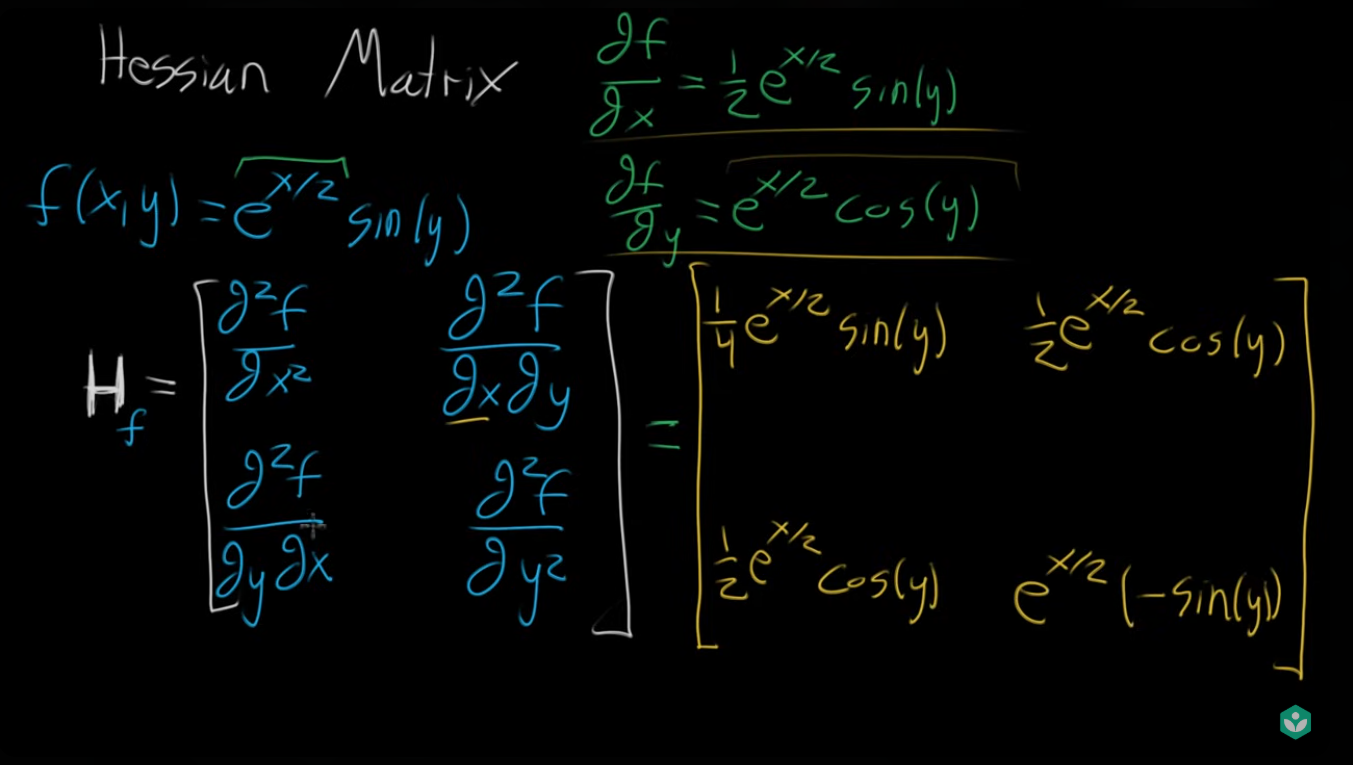 Hessian Matrix
∂f/∂x = 1/2 e^(x/2) sin(y)
f(x,y) = e^(x/2) sin(y)
∂f/∂y = e^(x/2) cos(y)
H_f = [ ∂²f/∂x² ∂²f/∂x∂y ] = [ 1/4 e^(x/2) sin(y) 1/2 e^(x/2) cos(y) ]
[ ∂²f/∂y∂x ∂²f/∂y² ] [ 1/2 e^(x/2) cos(y) e^(x/2) (-sin(y)) ]